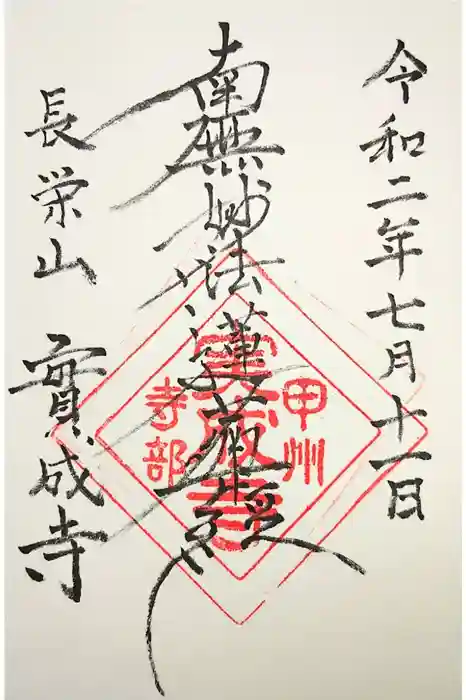 令和二年七月十一日
南無妙法蓮華經
長栄山 實成寺
甲州
實成寺
寺部